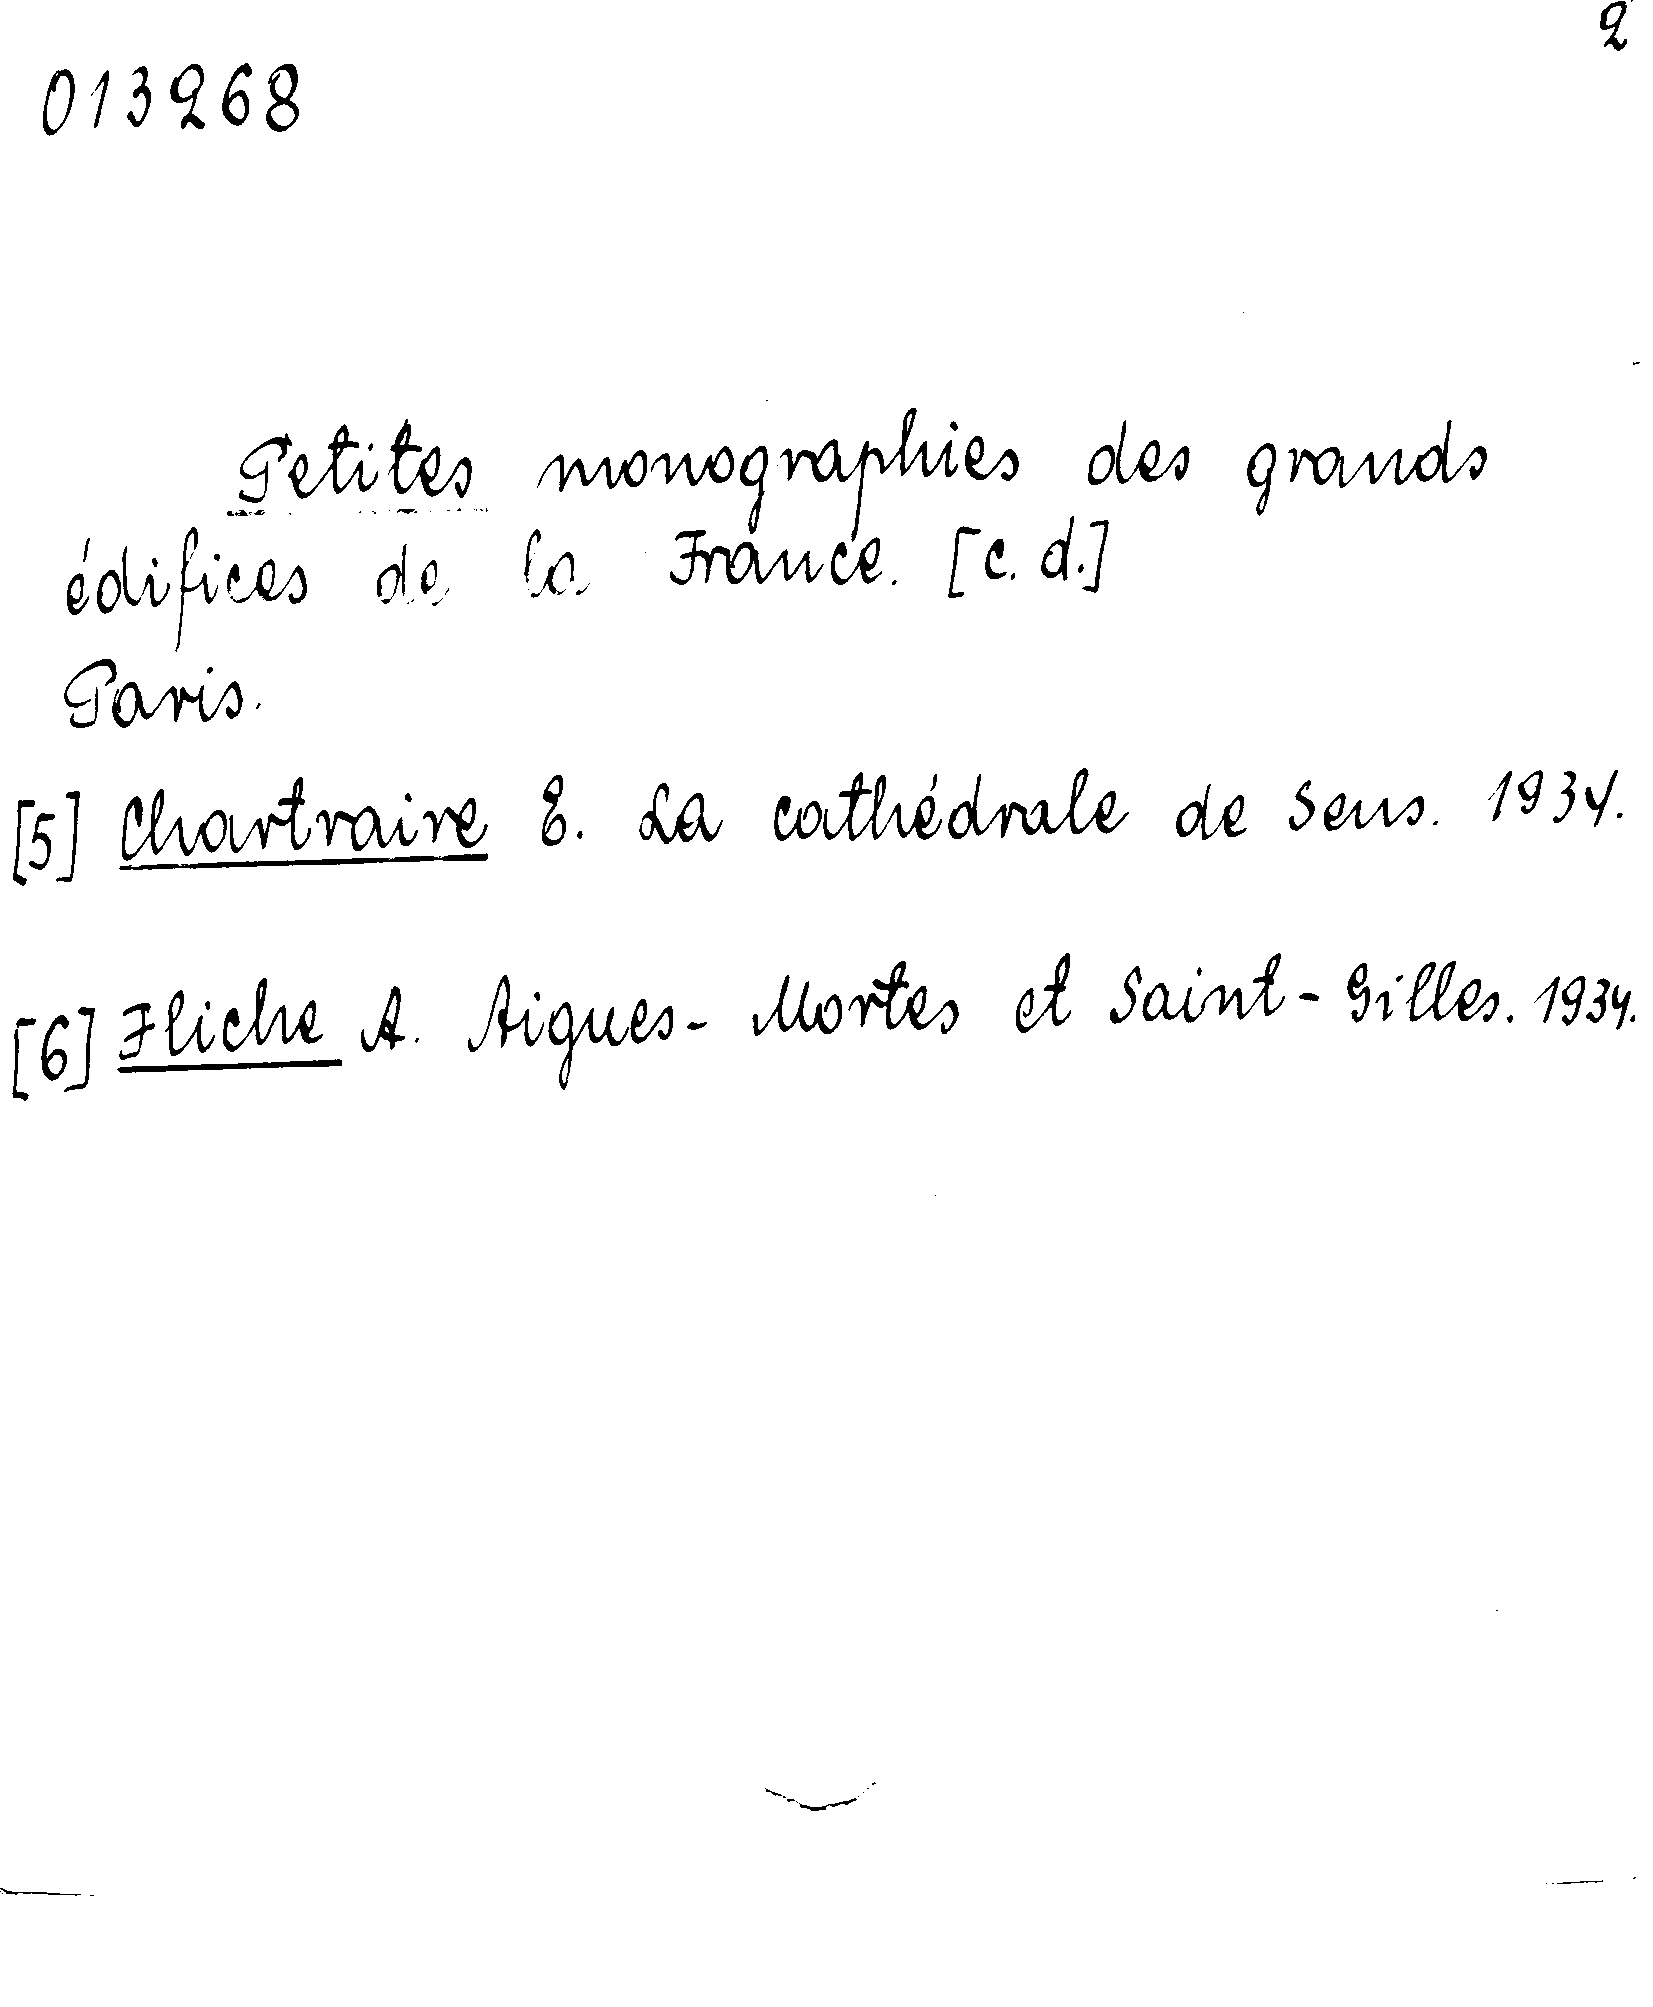 2
013268
Petites monographies des grands
édifices de la France. [c. d.]
Paris.
[5] Chartraire E. La cathédrale de Sens. 1934.
[6] Fliche A. Aigues-Mortes et Saint-Gilles. 1934.